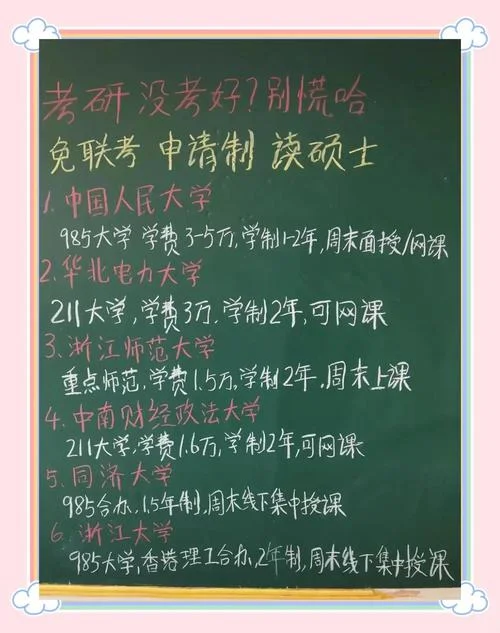 考研没考好?别慌哈
免联考 申请制 读硕士
1.中国人民大学
985大学 学费3-5万,学制1-2年,周末面授/网课
2.华北电力大学
211大学,学费3万.学制2年,可网课
3.浙江师范大学
重点师范,学费1.5万,学制2年.周末上课
4.中南财经政法大学
211大学,学费1.6万,学制2年,可网课
5.同济大学
985合办,1.5年制,周末线下集中授课
6.浙江大学
985大学,香港理工合办,2年制,周末线下集中授课